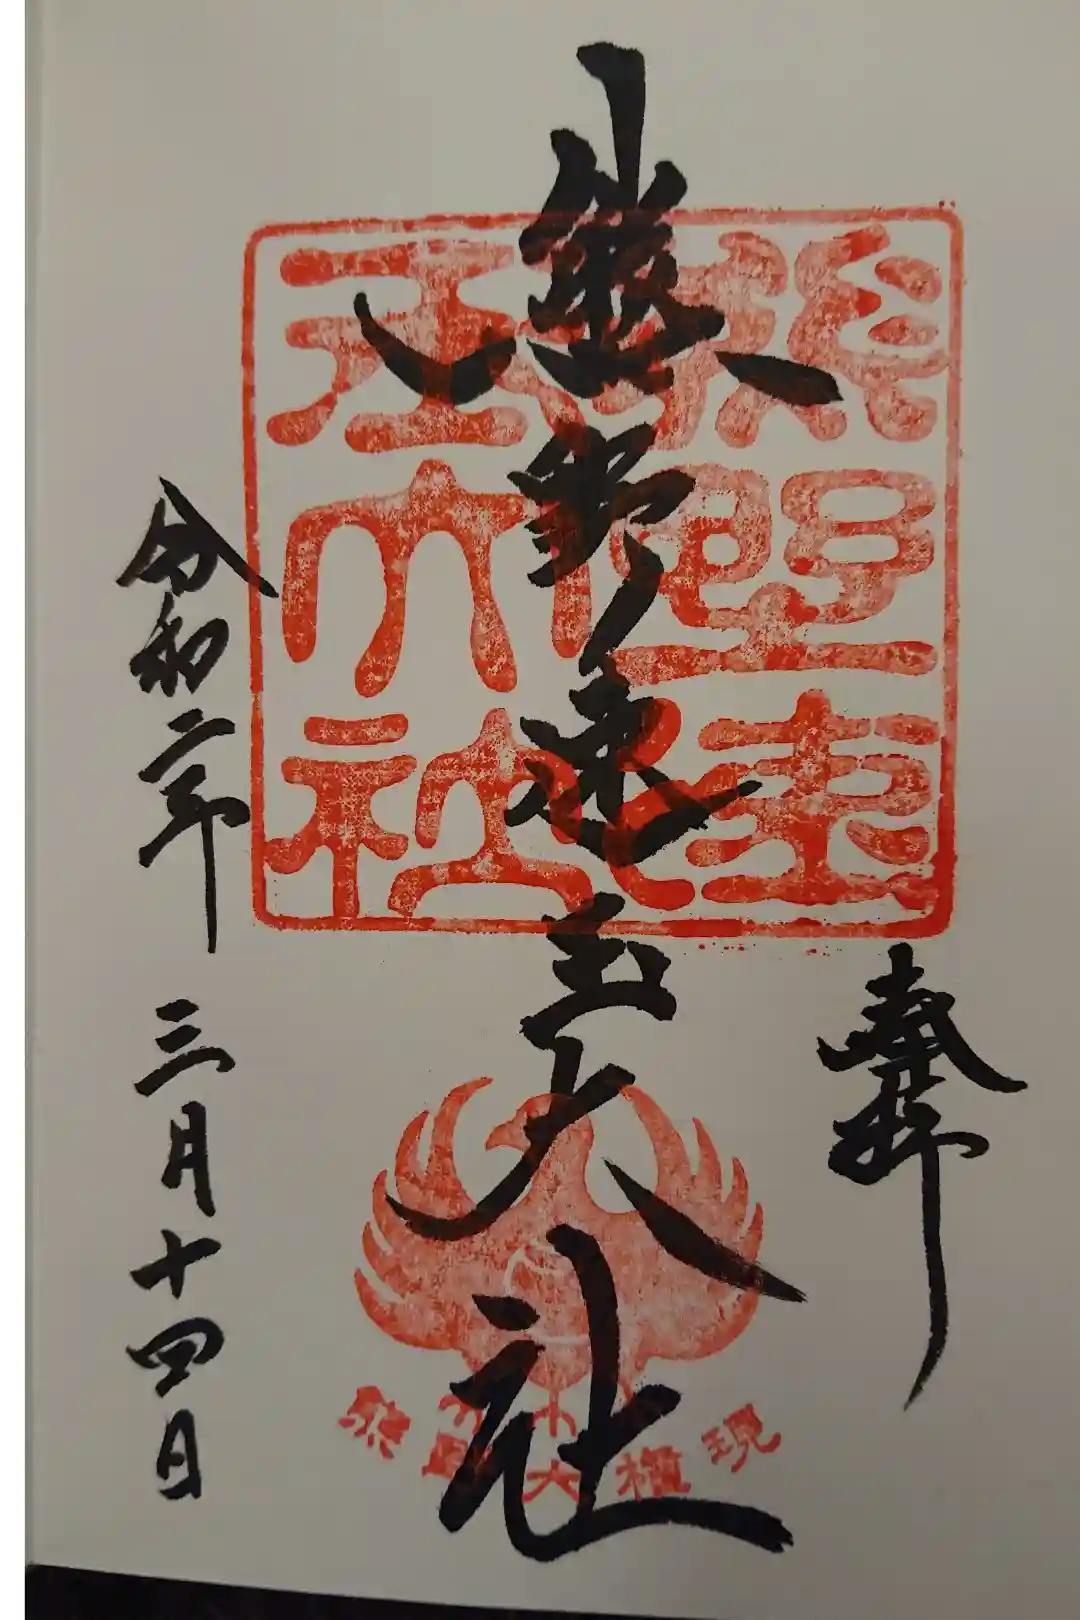 奉拝
熊野速玉大社
令和二年三月十四日
熊野速
玉大社
熊野大權現